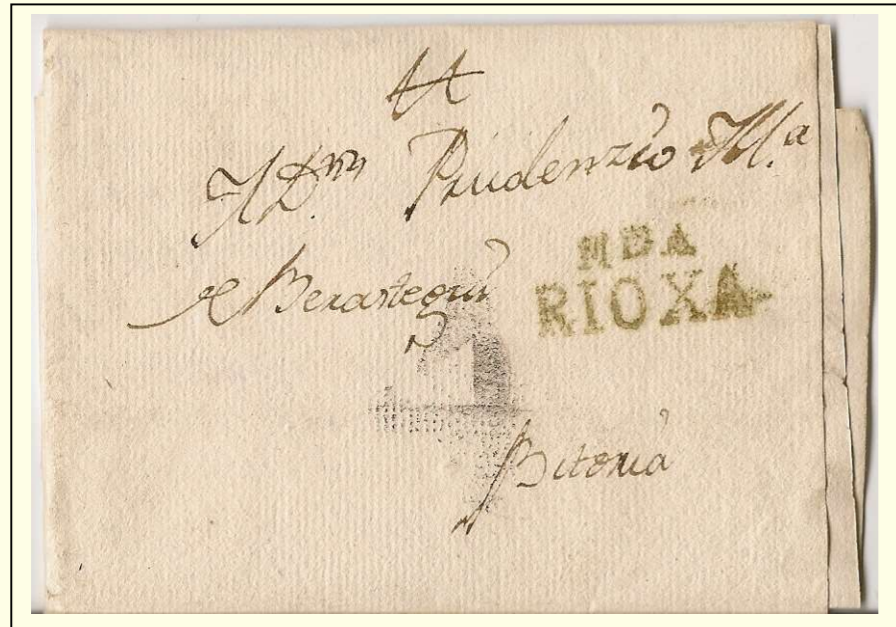 A Dn. Prudenzio Ma.
MDA
de Berastegui
RIOXA
Bitoria